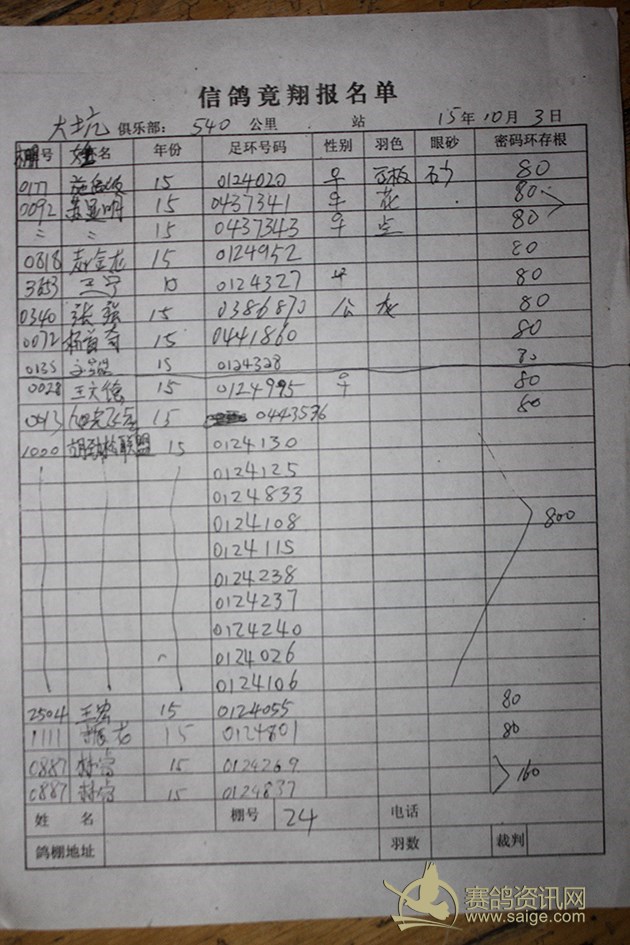 信鸽竟翔报名单
大坑 俱乐部: 540 公里 站 15年10月3日
棚号 姓名 年份 足环号码 性别 羽色 眼砂 密码环存根
0177 15 0124020 早 砂 80
0092 15 0437341 早 花 80
〃 〃 15 0437343 早 80
0818 赵金龙 15 0124952 80
3853 王宇 10 0124327 早 80
0340 张强 15 0386870 公 80
0072 杨首奇 15 0441860 80
0135 15 0124328 80
0028 王文德 15 0124995 早 80
0043 15 0443536 80
1000 胡劲松联盟 15 0124130
0124125
0124833
0124108 800
0124115
0124238
0124237
0124240
0124026
0124106
2504 王宏 15 0124055 80
1111 15 0124801 80
0887 15 0124269 160
0887 15 0124837
姓 名 棚号 24 电话
鸽棚地址 羽数 裁判
赛鸽资讯网
www.saige.com